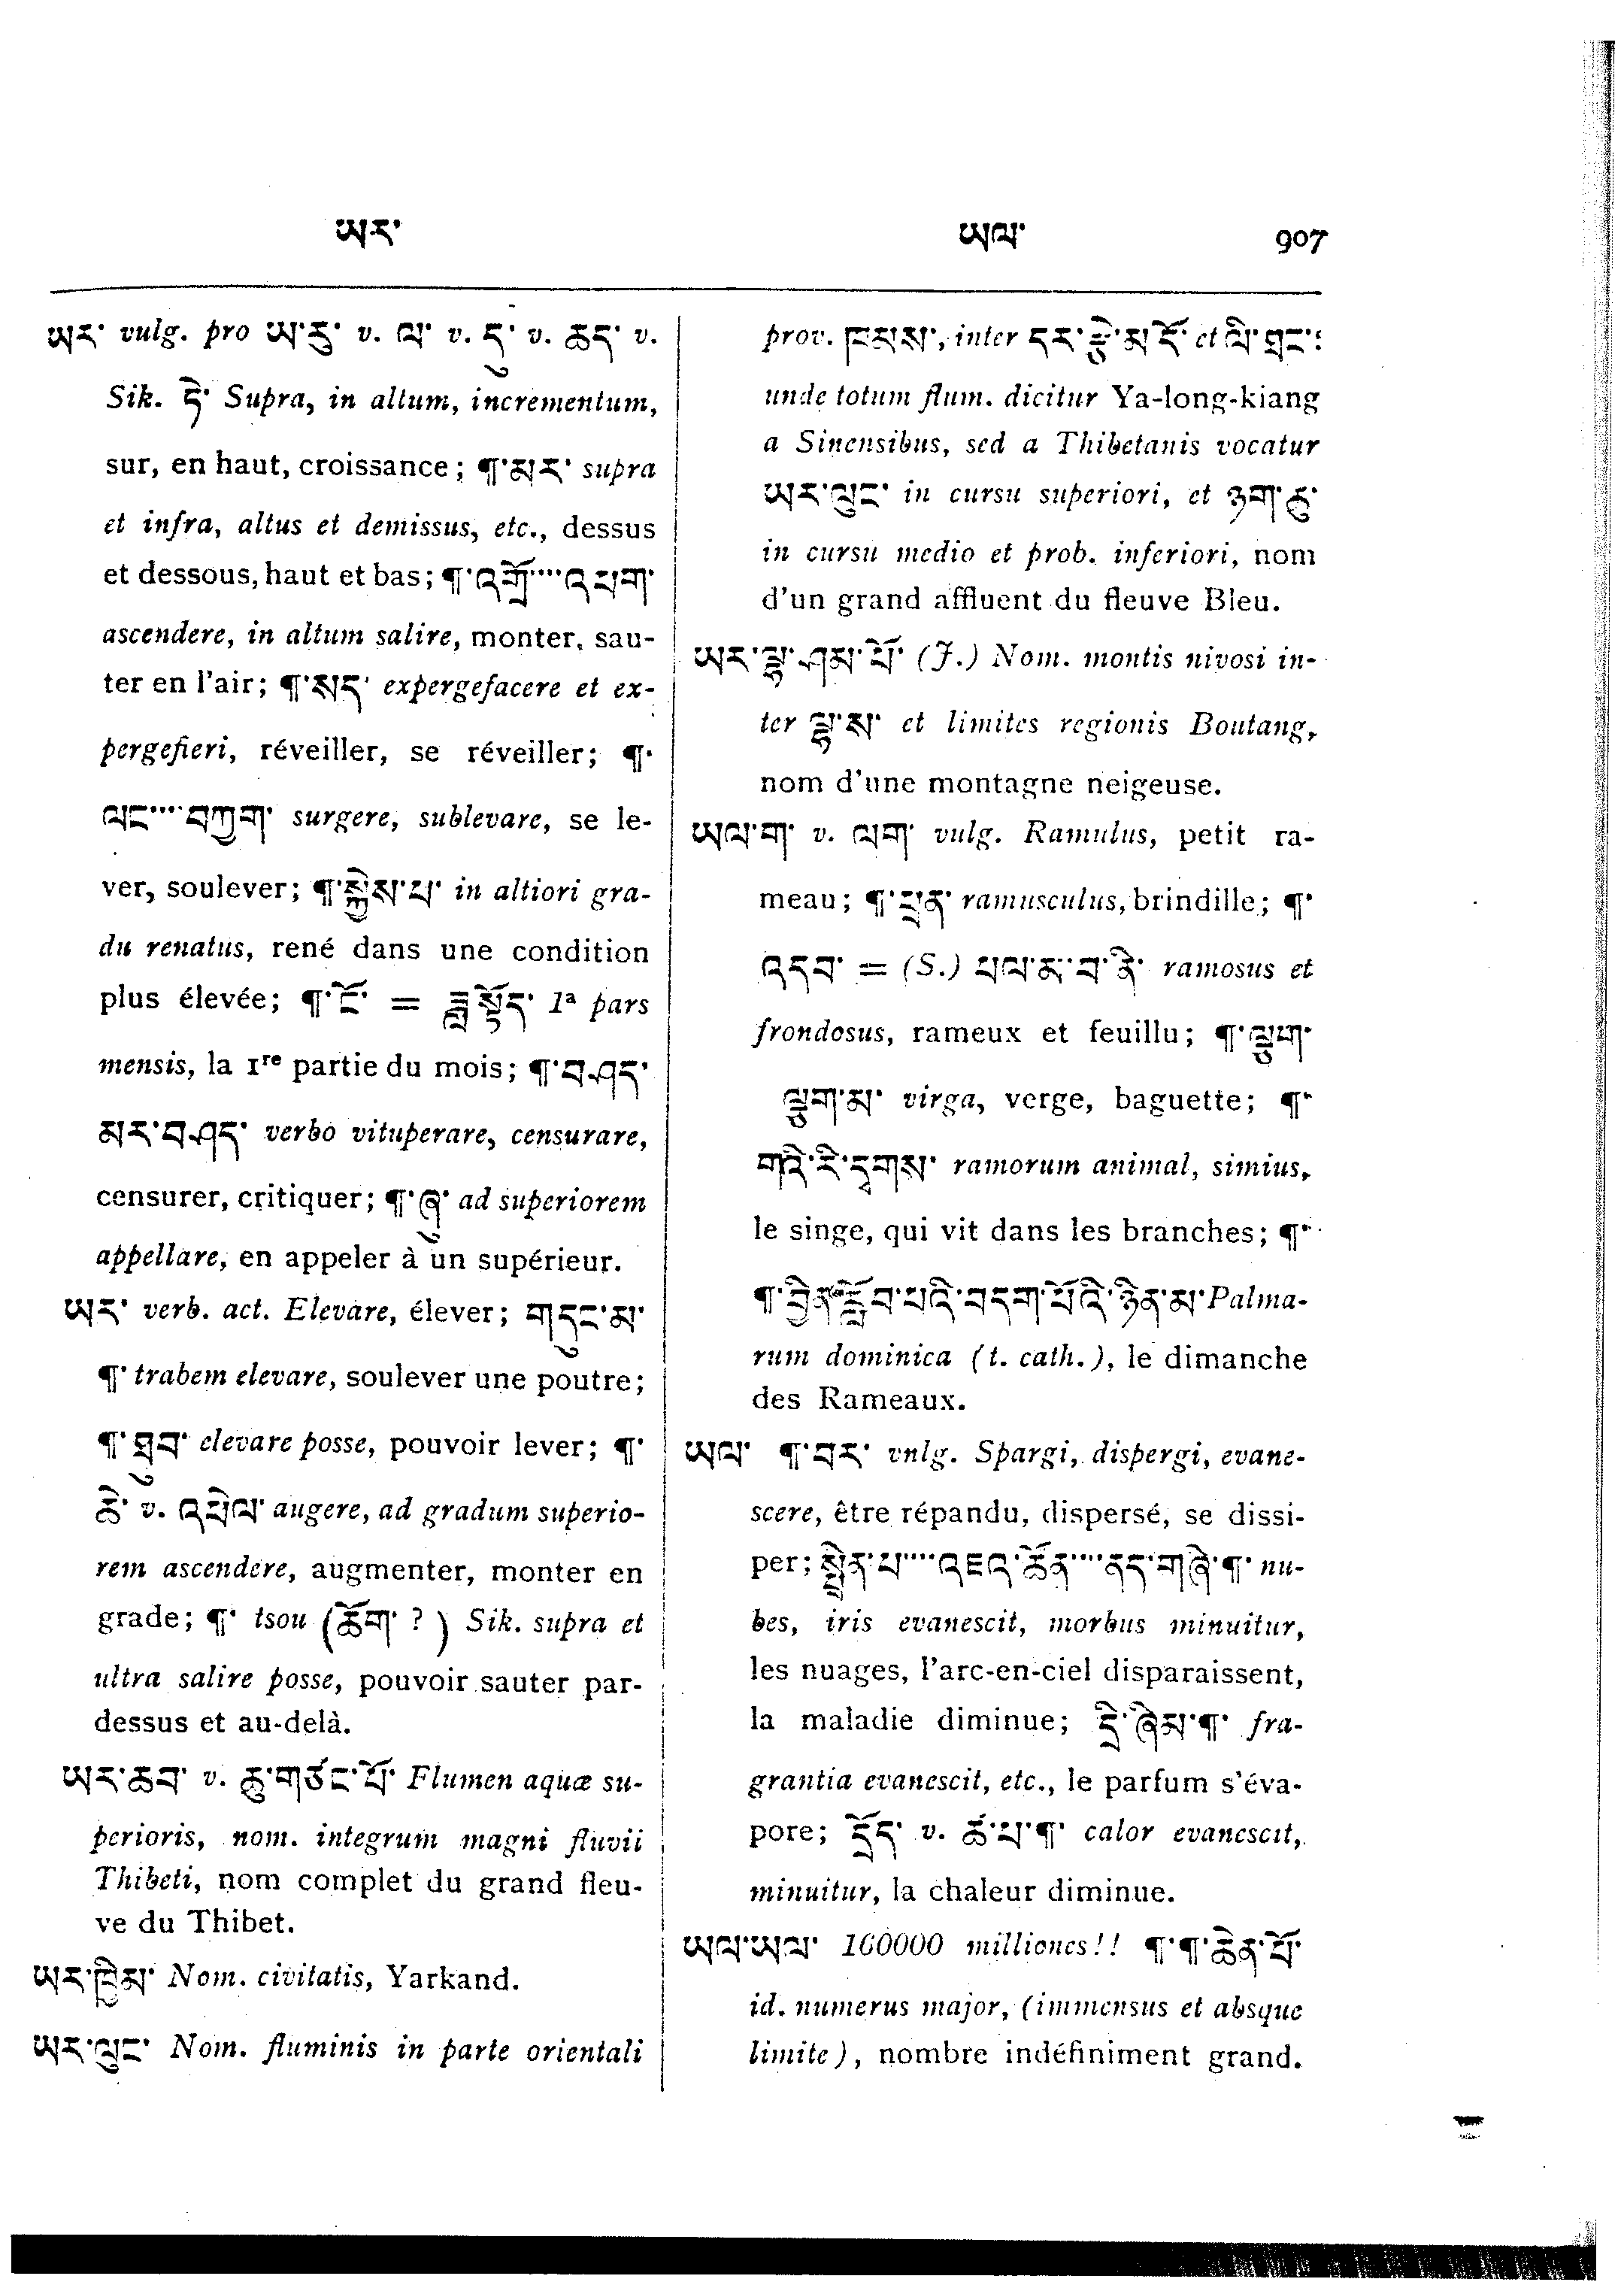 ཡར་
ཡལ་
907
ཡར་ vulg. pro ཡ་རུ་ v. ལ་ v. དུ་ v. ཆད་ v.
Sik. དེ་ Supra, in altum, incrementum,
sur, en haut, croissance; ¶་མར་ supra
et infra, altus et demissus, etc., dessus
et dessous, haut et bas; ¶་འགྲོ་····འཕག་
ascendere, in altum salire, monter, sau-
ter en l'air; ¶་སད་ expergefacere et ex-
pergefieri, réveiller, se réveiller; ¶་
ལང་····བཀྱག་ surgere, sublevare, se le-
ver, soulever; ¶་སྐྱེས་པ་ in altiori gra-
du renatus, rené dans une condition
plus élevée; ¶་ངོ་ = ཟླ་སྟོད་ 1ª pars
mensis, la 1re partie du mois; ¶་བཤད་
མར་བཤད་ verbo vituperare, censurare,
censurer, critiquer; ¶་ཞུ་ ad superiorem
appellare, en appeler à un supérieur.
ཡར་ verb. act. Elevare, élever; གདུང་མ་
¶་ trabem elevare, soulever une poutre;
¶་ཐུབ་ elevare posse, pouvoir lever; ¶་
ཆེ་ v. འཕེལ་ augere, ad gradum superio-
rem ascendere, augmenter, monter en
grade; ¶་ tsou (ཚོག་ ?) Sik. supra et
ultra salire posse, pouvoir sauter par-
dessus et au-delà.
ཡར་ཆབ་ v. ཆུ་གཙང་པོ་ Flumen aquæ su-
perioris, nom. integrum magni fluvii
Thibeti, nom complet du grand fleu-
ve du Thibet.
ཡར་ཁྱིམ་ Nom. civitatis, Yarkand.
ཡར་ལུང་ Nom. fluminis in parte orientali
prov. ཁམས་, inter དར་རྩེ་མདོ་ et ལི་ཐང་:
unde totum flum. dicitur Ya-long-kiang
a Sinensibus, sed a Thibetanis vocatur
ཡར་ལུང་ in cursu superiori, et ཉག་ཆུ་
in cursu medio et prob. inferiori, nom
d'un grand affluent du fleuve Bleu.
ཡར་ལྷ་ཤམ་པོ་ (J.) Nom. montis nivosi in-
ter ལྷ་ས་ et limites regionis Boutang,
nom d'une montagne neigeuse.
ཡལ་ག་ v. ལག་ vulg. Ramulus, petit ra-
meau; ¶་ཕྲན་ ramusculus, brindille; ¶་
འདབ་ = (S.) པལ་ན་བ་ནི་ ramosus et
frondosus, rameux et feuillu; ¶་ལྕུག་
ལྕུག་མ་ virga, verge, baguette; ¶་
གའི་རི་དྭགས་ ramorum animal, simius,
le singe, qui vit dans les branches; ¶་
¶་བྱིན་རློབ་པའི་བདག་པོའི་ཉིན་མ་ Palma-
rum dominica (t. cath.), le dimanche
des Rameaux.
ཡལ་ ¶་བར་ vnlg. Spargi, dispergi, evane-
scere, être répandu, dispersé, se dissi-
per; སྤྲིན་པ་····འཇའ་ཚོན་····ནད་གཞི་¶་ nu-
bes, iris evanescit, morbus minuitur,
les nuages, l'arc-en-ciel disparaissent,
la maladie diminue; དྲི་ཞིམ་¶་ fra-
grantia evanescit, etc., le parfum s'éva-
pore; དྲོད་ v. ཚ་པ་¶་ calor evanescit,
minuitur, la chaleur diminue.
ཡལ་ཡལ་ 100000 milliones!! ¶་¶་ཆེན་པོ་
id. numerus major, (immensus et absque
limite), nombre indéfiniment grand.